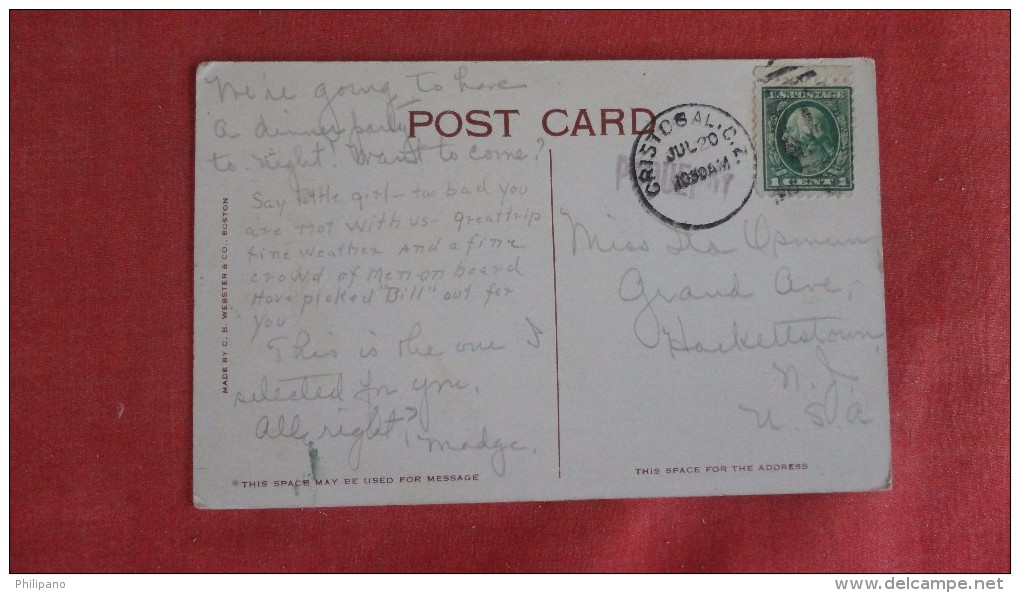 We're going to have
a dinner party
to-night! Want to come?
Say little girl - too bad you
are not with us - great trip
fine weather and a fine
crowd of men on board
Have picked "Bill" out for
you
This is the one I
selected for you.
All right?
Madge.
THIS SPACE MAY BE USED FOR MESSAGE
MADE BY C. B. WEBSTER & CO., BOSTON
POST CARD
CRISTOBAL, C.Z.
JUL 20
1030 AM
U.S. POSTAGE
1 CENT 1
Miss Ila
Grand Ave,
Hackettstown,
N. J.
U. S. A
THIS SPACE FOR THE ADDRESS
Philipano
www.delcampe.net